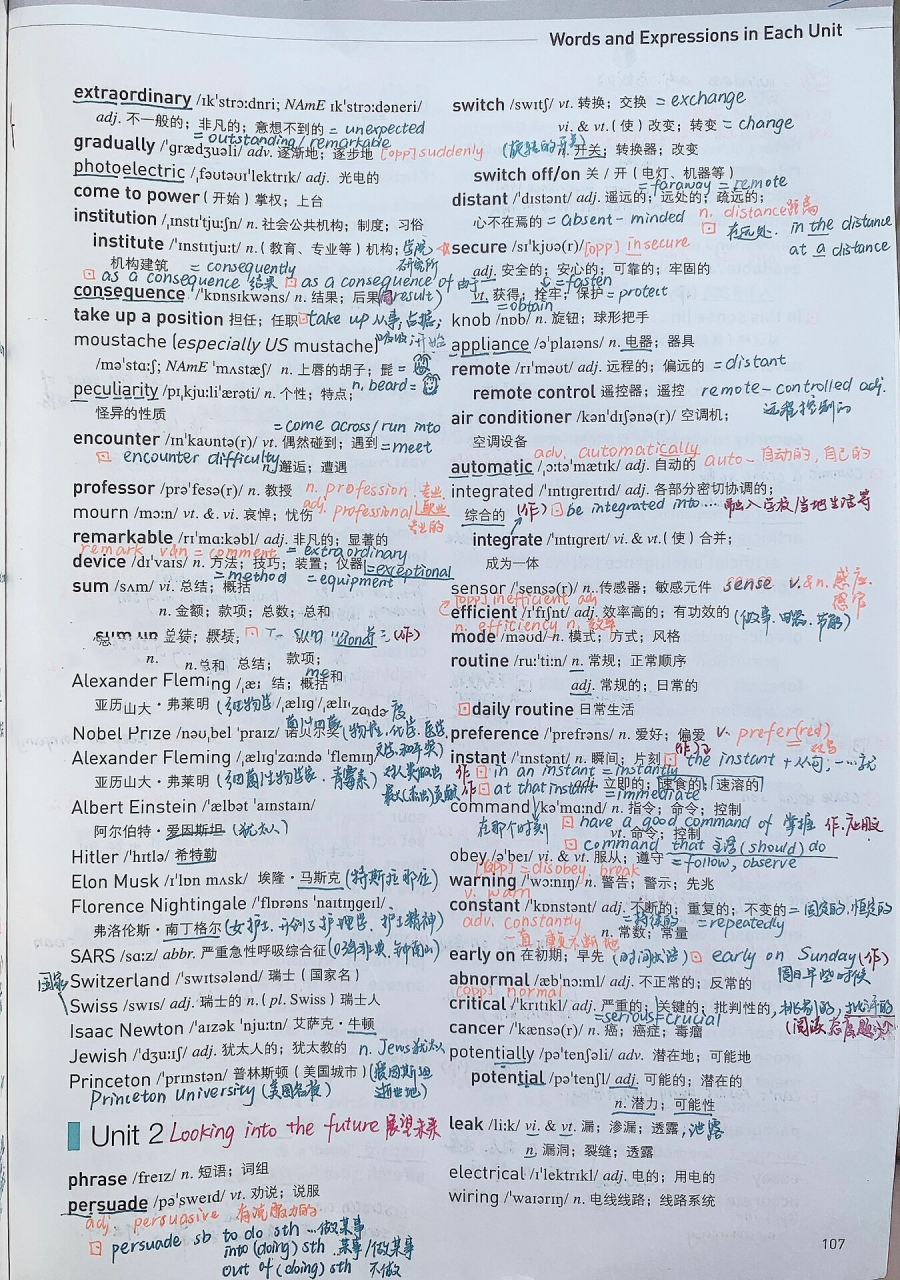 Words and Expressions in Each Unit
extraordinary /ɪkˈstrɔːdnri; NAmE ɪkˈstrɔːdəneri/
adj. 不一般的；非凡的；意想不到的 = unexpected
= outstanding / remarkable
gradually /ˈɡrædʒuəli/ adv. 逐渐地；逐步地 [opp] suddenly
photoelectric /ˌfəʊtəʊɪˈlektrɪk/ adj. 光电的
come to power (开始) 掌权；上台
institution /ˌɪnstɪˈtjuːʃn/ n. 社会公共机构；制度；习俗
institute /ˈɪnstɪtjuːt/ n. (教育、专业等) 机构；学院
机构建筑 研究所
= consequently
as a consequence 结果 as a consequence of 由于
consequence /ˈkɒnsɪkwəns/ n. 结果；后果 (result)
take up a position 担任；任职 take up 从事；占据；
吸收；开始
moustache (especially US mustache)
/məˈstɑːʃ; NAmE ˈmʌstæʃ/ n. 上唇的胡子；髭 =
n. beard =
peculiarity /pɪˌkjuːliˈærəti/ n. 个性；特点；
怪异的性质
= come across/run into
encounter /ɪnˈkaʊntə(r)/ vt. 偶然碰到；遇到 = meet
encounter difficulty n. 邂逅；遭遇
professor /prəˈfesə(r)/ n. 教授 n. profession 专业
mourn /mɔːn/ vt. & vi. 哀悼；忧伤 adj. professional 职业
专业的
remarkable /rɪˈmɑːkəbl/ adj. 非凡的；显著的
remark v&n = comment = extraordinary
device /dɪˈvaɪs/ n. 方法；技巧；装置；仪器 = exceptional
= method = equipment
sum /sʌm/ vi. 总结；概括
n. 金额；款项；总数；总和
sum up 总结；概括
n. n.总和 总结； 款项；
Alexander Fleming 结；概括和
亚历山大·弗莱明 (细物学
Nobel Prize /nəʊˌbel ˈpraɪz/ 诺贝尔奖 (物理、化学、医学
Alexander Fleming /ˌælɪɡˈzɑːndə ˈflemɪŋ/
亚历山大·弗莱明 (细菌生物学家、青霉素)
Albert Einstein /ˈælbət ˈaɪnstaɪn/
阿尔伯特·爱因斯坦 (犹太人)
Hitler /ˈhɪtlə/ 希特勒
Elon Musk /ˈɪlɒn mʌsk/ 埃隆·马斯克 (特斯拉那位)
Florence Nightingale /ˈflɒrəns ˈnaɪtɪŋɡeɪl/
弗洛伦斯·南丁格尔 (女护士、计创了护理学、护士精神)
SARS /sɑːz/ abbr. 严重急性呼吸综合征 (03年非典、钟南山)
国家
Switzerland /ˈswɪtsələnd/ 瑞士 (国家名)
Swiss /swɪs/ adj. 瑞士的 n. (pl. Swiss) 瑞士人
Isaac Newton /ˈaɪzək ˈnjuːtn/ 艾萨克·牛顿
Jewish /ˈdʒuːɪʃ/ adj. 犹太人的；犹太教的 n. Jews 犹太人
Princeton /ˈprɪnstən/ 普林斯顿 (美国城市) (爱因斯坦
Princeton University (美国名校) 逝世地)
Unit 2 Looking into the future 展望未来
phrase /freɪz/ n. 短语；词组
persuade /pəˈsweɪd/ vt. 劝说；说服
adj. persuasive 有说服力的
persuade sb to do sth …做某事
into (doing) sth 某事/做某事
out of (doing) sth 不做
switch /swɪtʃ/ vt. 转换；交换 = exchange
vi. & vt. (使) 改变；转变 = change
(旋转的开关) n. 开关；转换器；改变
switch off/on 关 / 开 (电灯、机器等)
= faraway = remote
distant /ˈdɪstənt/ adj. 遥远的；远处的；疏远的；
心不在焉的 = absent-minded n. distance 距离
在远处. in the distance
at a distance
secure /sɪˈkjʊə(r)/ [opp] insecure
adj. 安全的；安心的；可靠的；牢固的
= fasten
vt. 获得；拴牢；保护 = protect
= obtain
knob /nɒb/ n. 旋钮；球形把手
appliance /əˈplaɪəns/ n. 电器；器具
remote /rɪˈməʊt/ adj. 远程的；偏远的 = distant
remote control 遥控器；遥控 remote-controlled adj.
远程控制的
air conditioner /kənˈdɪʃənə(r)/ 空调机；
空调设备
adv. automatically
automatic /ˌɔːtəˈmætɪk/ adj. 自动的 auto- 自动的，自己的
integrated /ˈɪntɪɡreɪtɪd/ adj. 各部分密切协调的；
综合的 (作) be integrated into … 融入学校/当地生活等
integrate /ˈɪntɪɡreɪt/ vi. & vt. (使) 合并；
成为一体
sensor /ˈsensə(r)/ n. 传感器；敏感元件 sense v.&n. 感应.
感官
[opp] inefficient adj
efficient /ɪˈfɪʃnt/ adj. 效率高的；有功效的 (做事、电器、节能)
n. efficiency n. 效率
mode /məʊd/ n. 模式；方式；风格
routine /ruːˈtiːn/ n. 常规；正常顺序
adj. 常规的；日常的
daily routine 日常生活
preference /ˈprefrəns/ n. 爱好；偏爱 v. prefer(red)
双写
instant /ˈɪnstənt/ n. 瞬间；片刻 the instant + 从句，一…就
作 in an instant = instantly
adj. 立即的；速食的；速溶的
作 at that instant = immediate
在那个时刻
command /kəˈmɑːnd/ n. 指令；命令；控制
have a good command of 掌握 作.应用文
vt. 命令；控制
command that 主语 (should) do
obey /əˈbeɪ/ vi. & vt. 服从；遵守 = follow, observe
[opp] = disobey, break
warning /ˈwɔːnɪŋ/ n. 警告；警示；先兆
v. warn
constant /ˈkɒnstənt/ adj. 不断的；重复的；不变的 = 固定的，恒定的
adv. constantly = 持续的 = repeatedly
n. 常数；常量
early on 在初期；早先 (时间状语) early on Sunday (作)
周日早些时候
abnormal /æbˈnɔːml/ adj. 不正常的；反常的
[opp] normal
critical /ˈkrɪtɪkl/ adj. 严重的；关键的；批判性的，挑剔的，批评的
= serious = crucial (阅读态度题)
cancer /ˈkænsə(r)/ n. 癌；癌症；毒瘤
potentially /pəˈtenʃəli/ adv. 潜在地；可能地
potential /pəˈtenʃl/ adj. 可能的；潜在的
n. 潜力；可能性
leak /liːk/ vi. & vt. 漏；渗漏；透露，泄露
n. 漏洞；裂缝；透露
electrical /ɪˈlektrɪkl/ adj. 电的；用电的
wiring /ˈwaɪərɪŋ/ n. 电线线路；线路系统
107